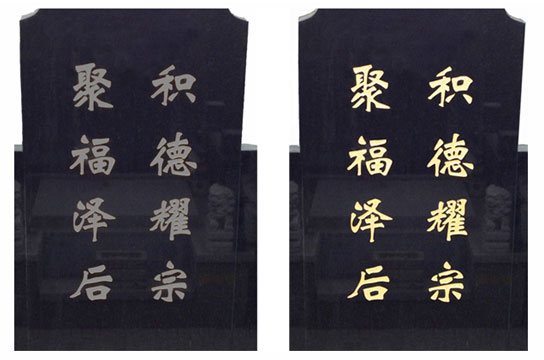 积德耀宗
聚福泽后
积德耀宗
聚福泽后